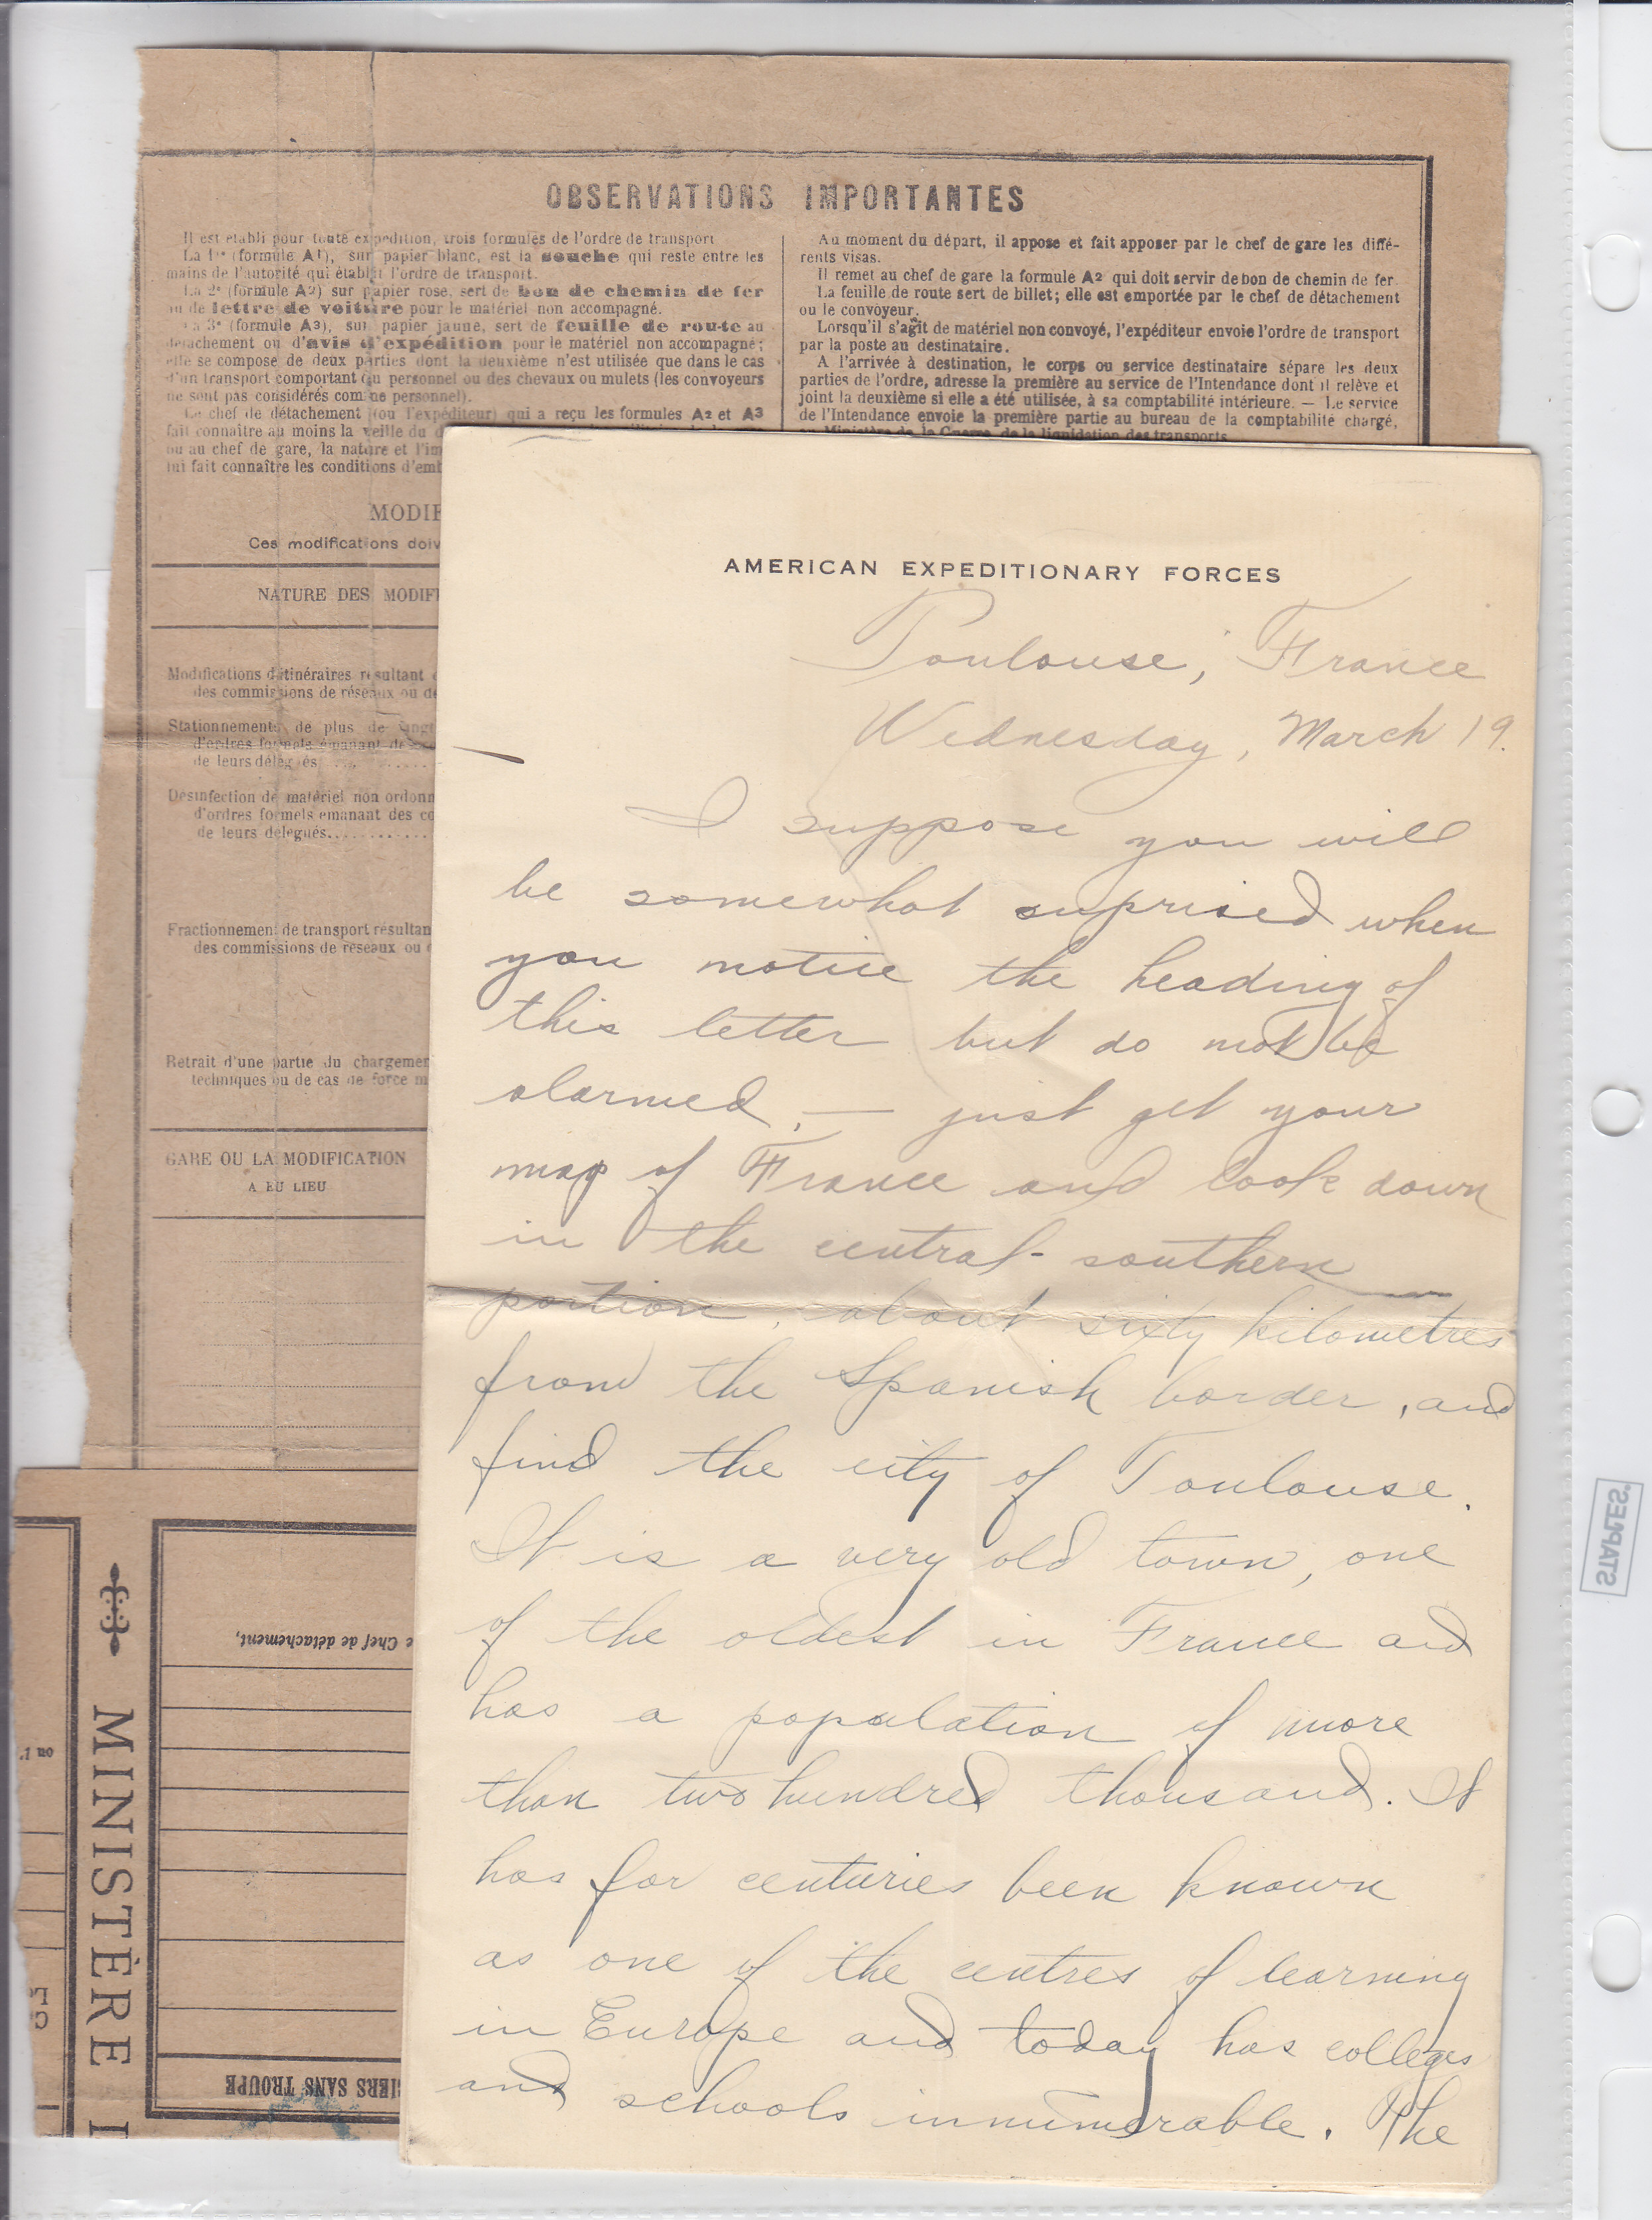 OBSERVATIONS IMPORTANTES
Il est établi pour toute expédition, trois formules de l'ordre de transport
La 1re (formule A1), sur papier blanc, est la souche qui reste entre les
mains de l'autorité qui établit l'ordre de transport.
La 2e (formule A2) sur papier rose, sert de bon de chemin de fer
ou de lettre de voiture pour le matériel non accompagné.
La 3e (formule A3), sur papier jaune, sert de feuille de rou-te au
détachement ou d'avis d'expédition pour le matériel non accompagné;
elle se compose de deux parties dont la deuxième n'est utilisée que dans le cas
d'un transport comportant du personnel ou des chevaux ou mulets (les convoyeurs
ne sont pas considérés comme personnel).
Le chef de détachement (ou l'expéditeur) qui a reçu les formules A2 et A3
fait connaître au moins la veille du d
ou au chef de gare, la nature et l'im
lui fait connaître les conditions d'emb
Au moment du départ, il appose et fait apposer par le chef de gare les diffé-
rents visas.
Il remet au chef de gare la formule A2 qui doit servir de bon de chemin de fer.
La feuille de route sert de billet; elle est emportée par le chef de détachement
ou le convoyeur.
Lorsqu'il s'agit de matériel non convoyé, l'expéditeur envoie l'ordre de transport
par la poste au destinataire.
A l'arrivée à destination, le corps ou service destinataire sépare les deux
parties de l'ordre, adresse la première au service de l'Intendance dont il relève et
joint la deuxième si elle a été utilisée, à sa comptabilité intérieure. — Le service
de l'Intendance envoie la première partie au bureau de la comptabilité chargé,
au Ministère de la Guerre, de la liquidation des transports.
MODIF
Ces modifications doiv
NATURE DES MODIFI
Modifications d'itinéraires résultant
des commissions de réseaux ou de
Stationnements de plus de vingt
d'ordres formels émanant des
de leurs délégués
Désinfection de matériel non ordonn
d'ordres formels émanant des co
de leurs délégués
Fractionnement de transport résultan
des commissions de réseaux ou
Retrait d'une partie du chargemen
techniques ou de cas de force m
GARE OU LA MODIFICATION
A EU LIEU
AMERICAN EXPEDITIONARY FORCES
Toulouse, France
Wednesday, March 19.
I suppose you will
be somewhat suprised when
you notice the heading of
this letter but do not be
alarmed, — just get your
map of France and look down
in the central-southern
portion, about sixty kilometres
from the Spanish border, and
find the city of Toulouse.
It is a very old town, one
of the oldest in France and
has a population of more
than two hundred thousand. It
has for centuries been known
as one of the centres of learning
in Europe and today has colleges
and schools innumerable. The
e Chef de détachement,
MINISTÈRE
IERS SANS TROUPE
ou l'
STAPLES